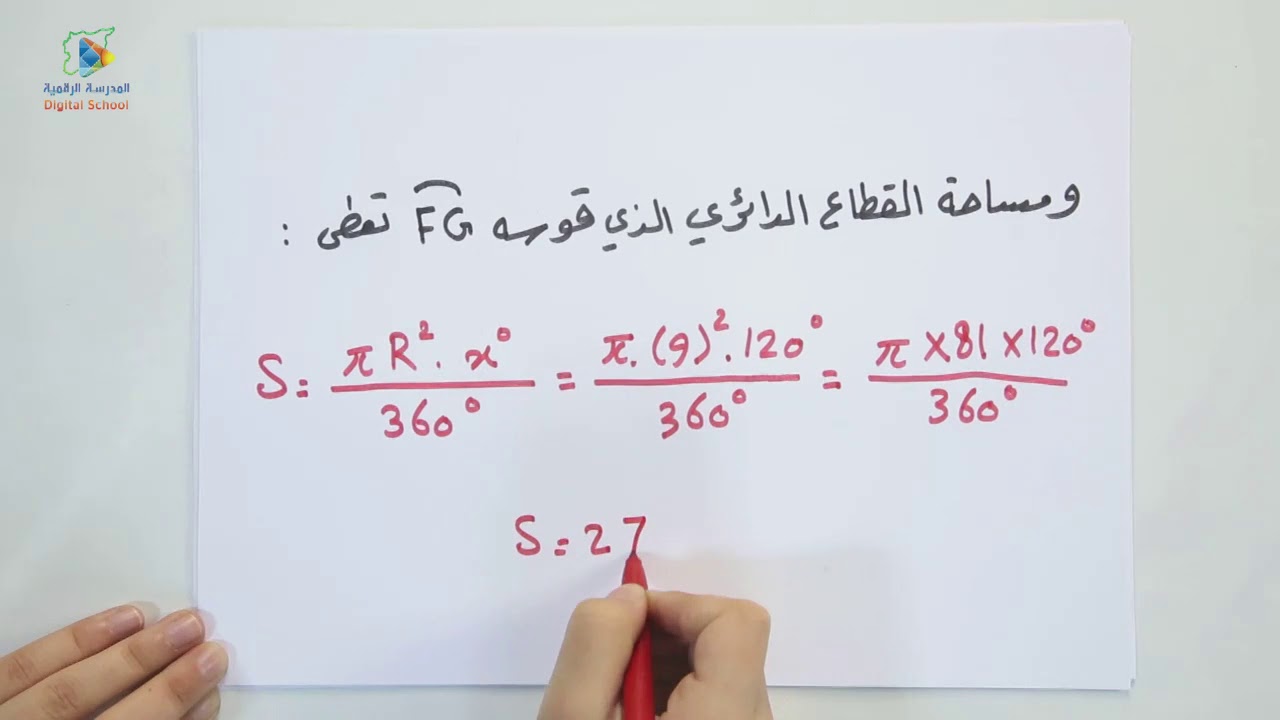 المدرسة الرقمية
Digital School
ومساحة القطاع الدائري الذي قوسه FG تعطى :
S = πR². x° / 360° = π.(9)².120° / 360° = π×81×120° / 360°
S = 27